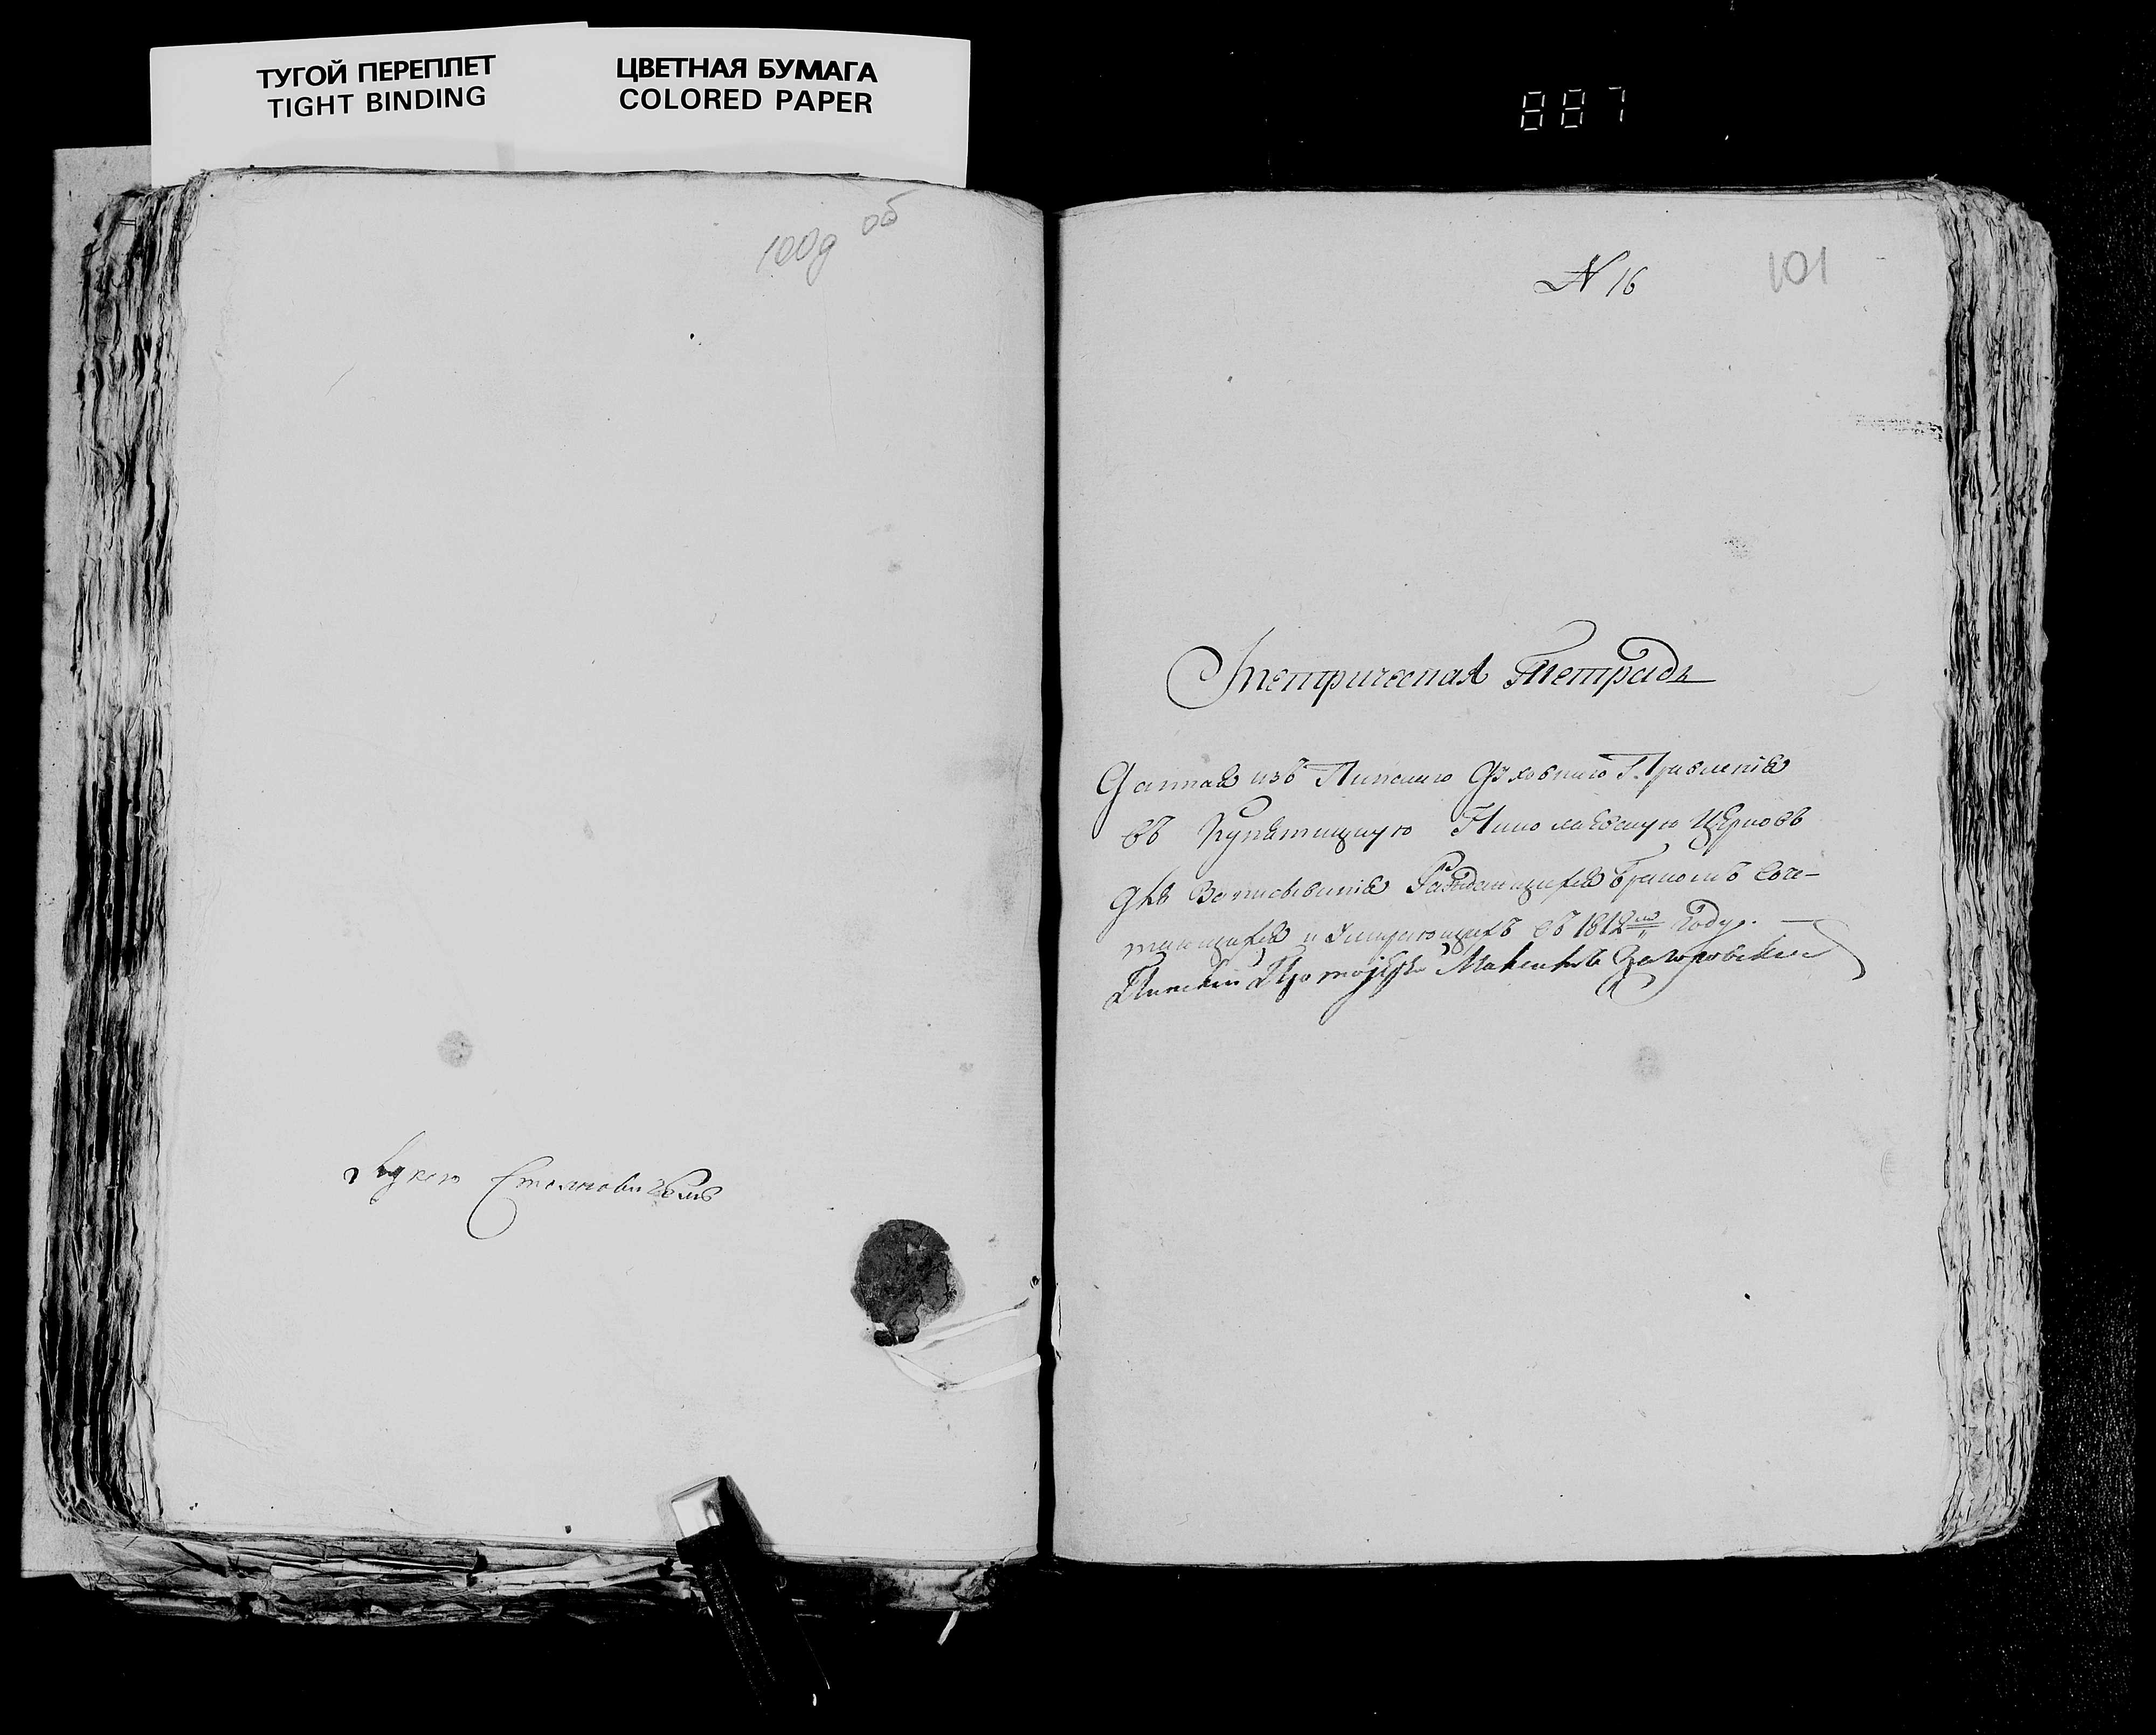 ТУГОЙ ПЕРЕПЛЕТ
TIGHT BINDING
ЦВЕТНАЯ БУМАГА
COLORED PAPER
887
об
N 16
101
Метрическая Тетрадь
Данная изъ Пинскаго Духовнаго Правленія
въ Купятицкую Николаевскую Церковь
для Записыванія Раждающихся Бракомъ соче-
тающихся и Умирающихъ въ 1812мъ Году.
Пинскій Протоіерей
Стояновичемъ